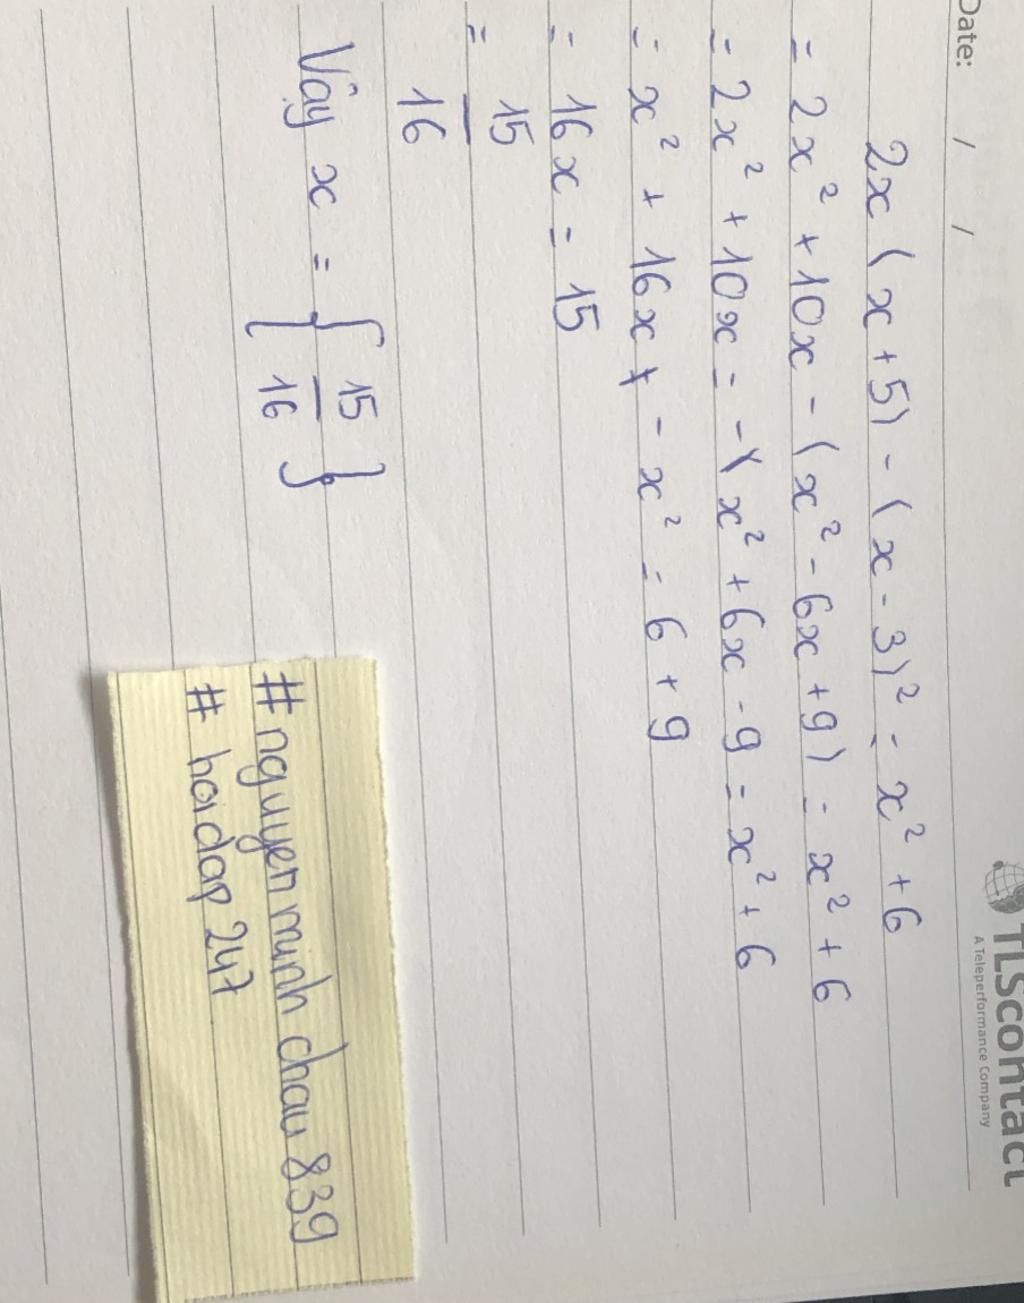 Date: / /
TLScontact
A Teleperformance Company
2x ( x + 5) - ( x - 3)² = x² + 6
= 2x² + 10x - ( x² - 6x + 9) = x² + 6
= 2x² + 10x = - x² + 6x - 9 = x² + 6
= x² + 16x - x² = 6 + 9
= 16x = 15
= 15/16
Vậy x = { 15/16 }
# nguyen minh chau 839
# hoidap 247